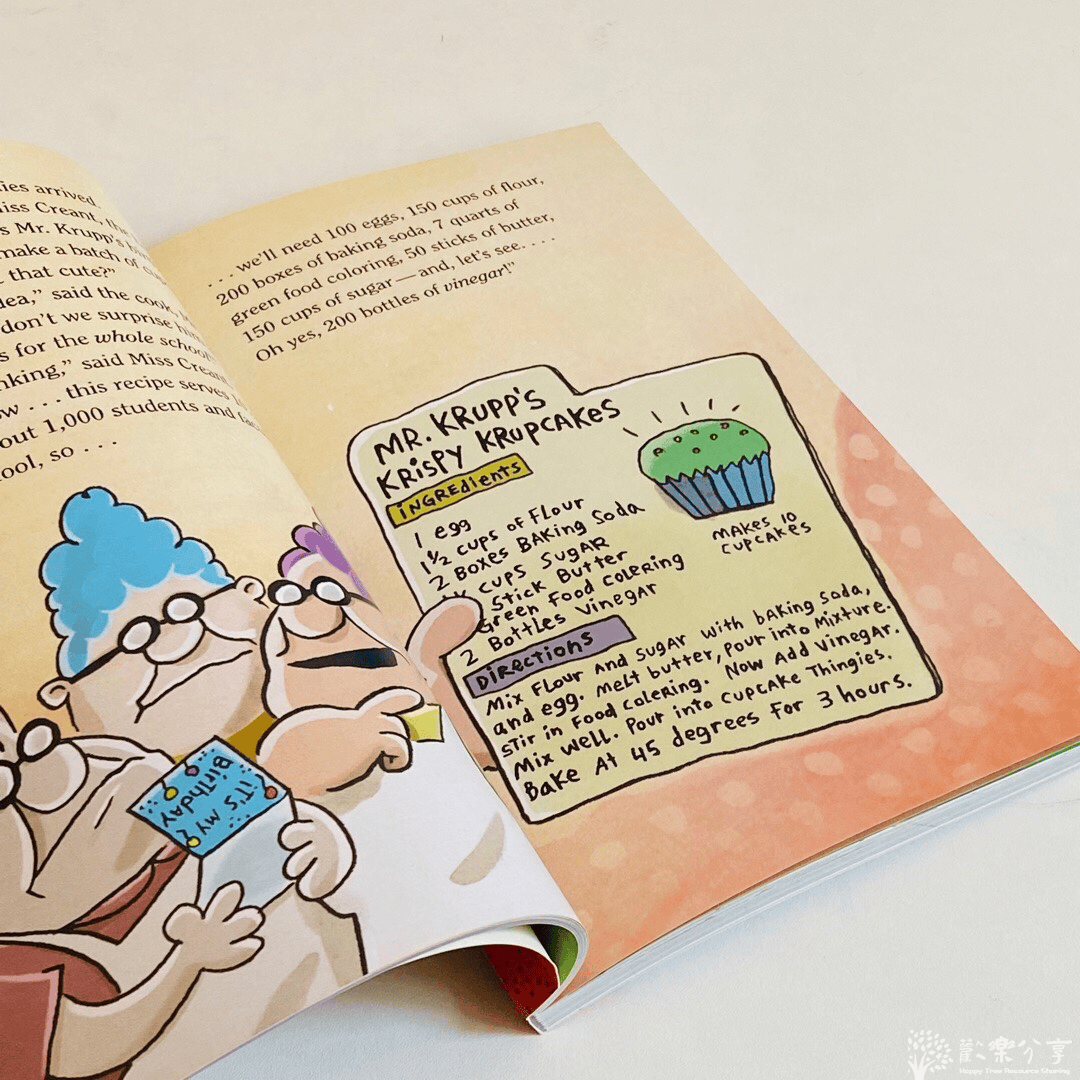 ies arrived
iss Creant, the
s Mr. Krupp's
make a batch of
that cute?"
dea," said the cook,
don't we surprise him
s for the whole school
nking," said Miss Creant
ow . . . this recipe serves
out 1,000 students and
ool, so . . .
. . . we'll need 100 eggs, 150 cups of flour,
200 boxes of baking soda, 7 quarts of
green food coloring, 50 sticks of butter,
150 cups of sugar—and, let's see. . . .
Oh yes, 200 bottles of vinegar!"
MR. KRUPP'S
KRiSPY KRUPCAKES
iNGREdieNts
1 egg
1½ cups of FLOUR
2 Boxes BAKiNg Soda
cups SugAR
Stick Butter
Green Food COLERiNg
2 Bottles Vinegar
MAKes 10
CUPCAKes
DiRectioNs
Mix FLOUR AND SugAR with bAKiNg Soda,
and egg. Melt butter, pour into Mixture.
Stir in Food COLERiNg. Now Add Vinegar.
Mix Well. Pour into CUPCAKe Thingies.
Bake At 45 degrees for 3 hours.
iT'S MY
BiRtHDAY
歡樂分享
Happy Tree Resource Sharing